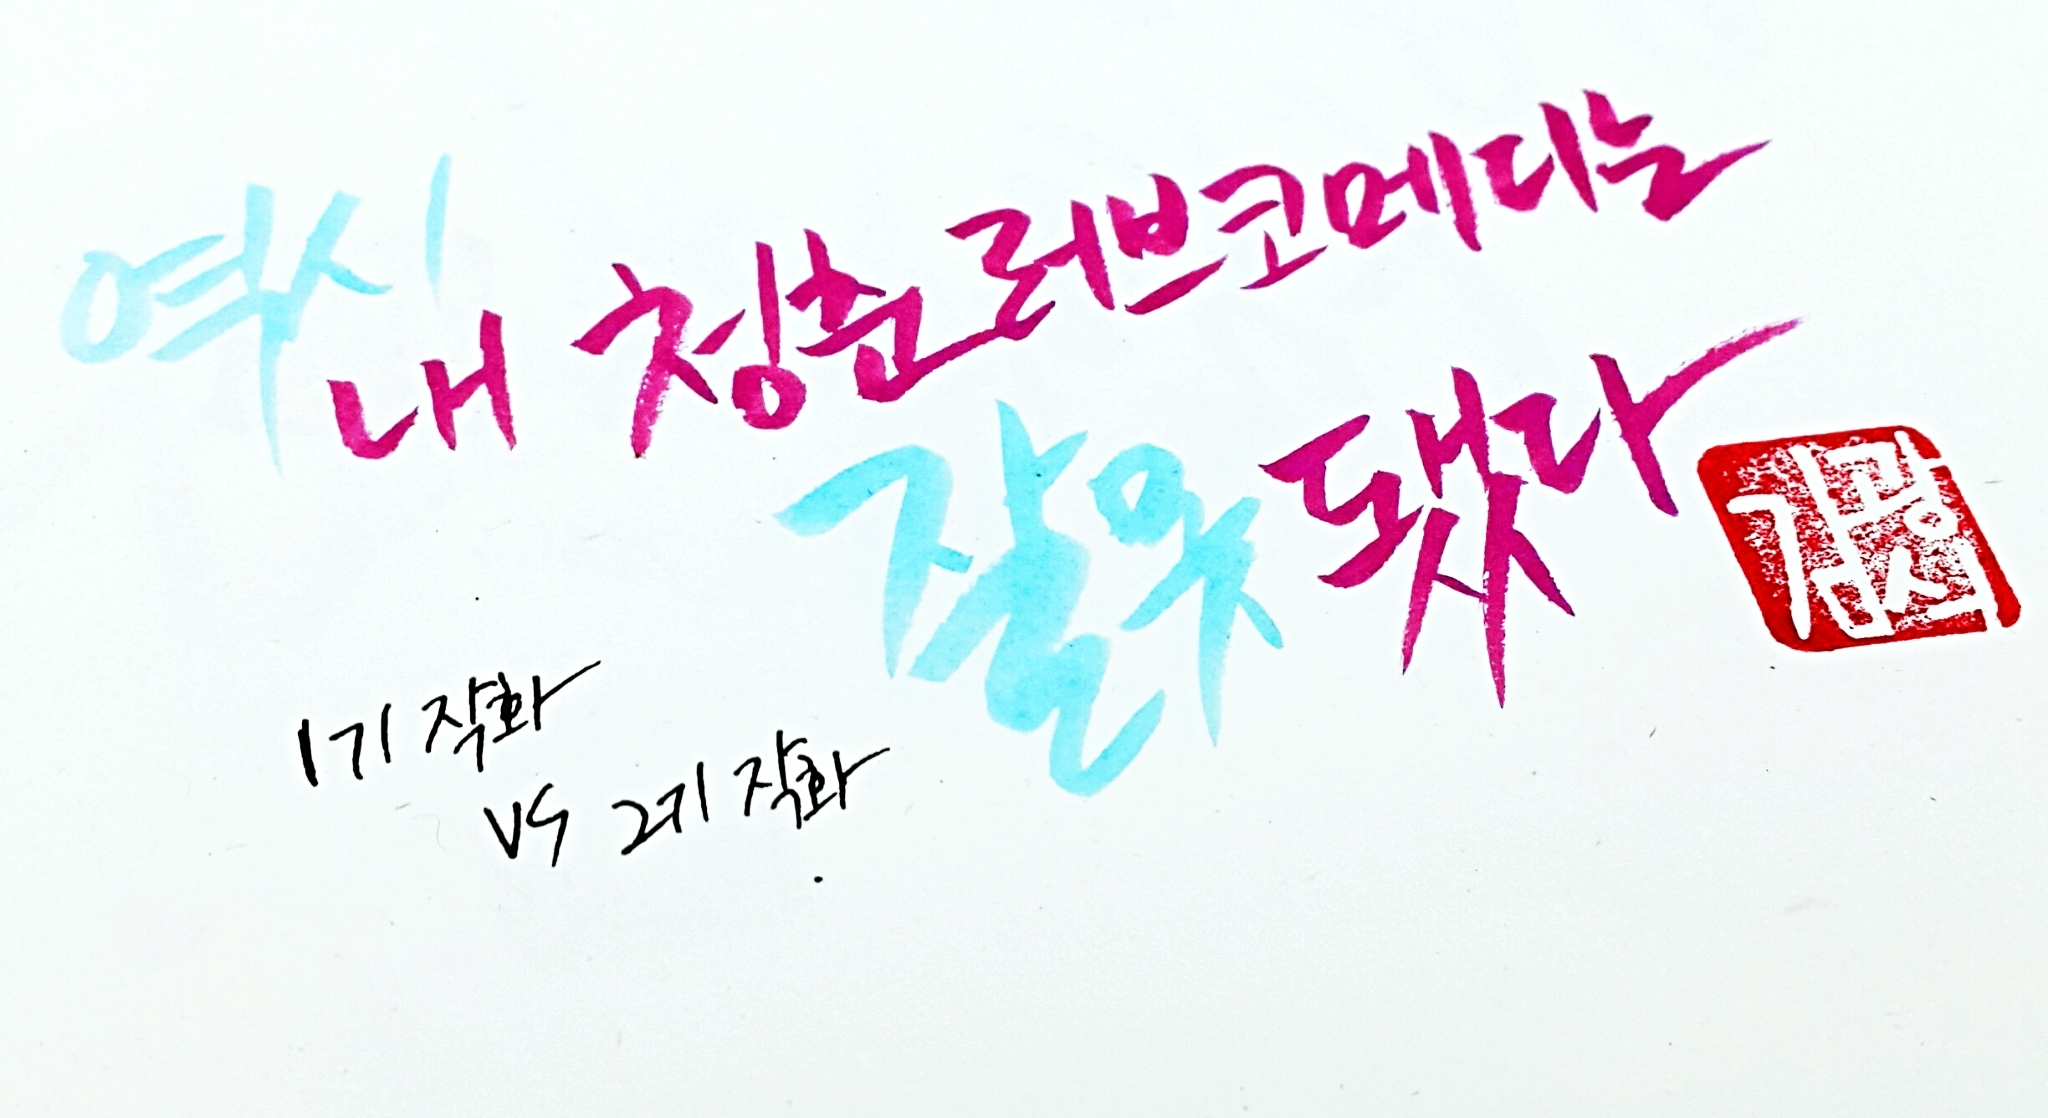 역시
내 청춘 러브코메디는
잘못 됐다
1기 작화
VS 2기 작화